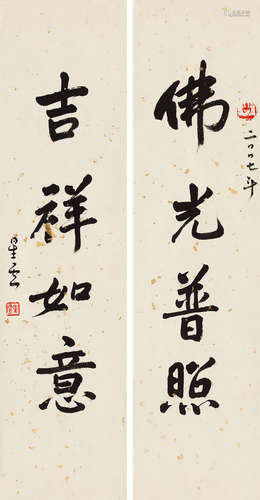 佛光普照
二〇〇七年
吉祥如意
星雲